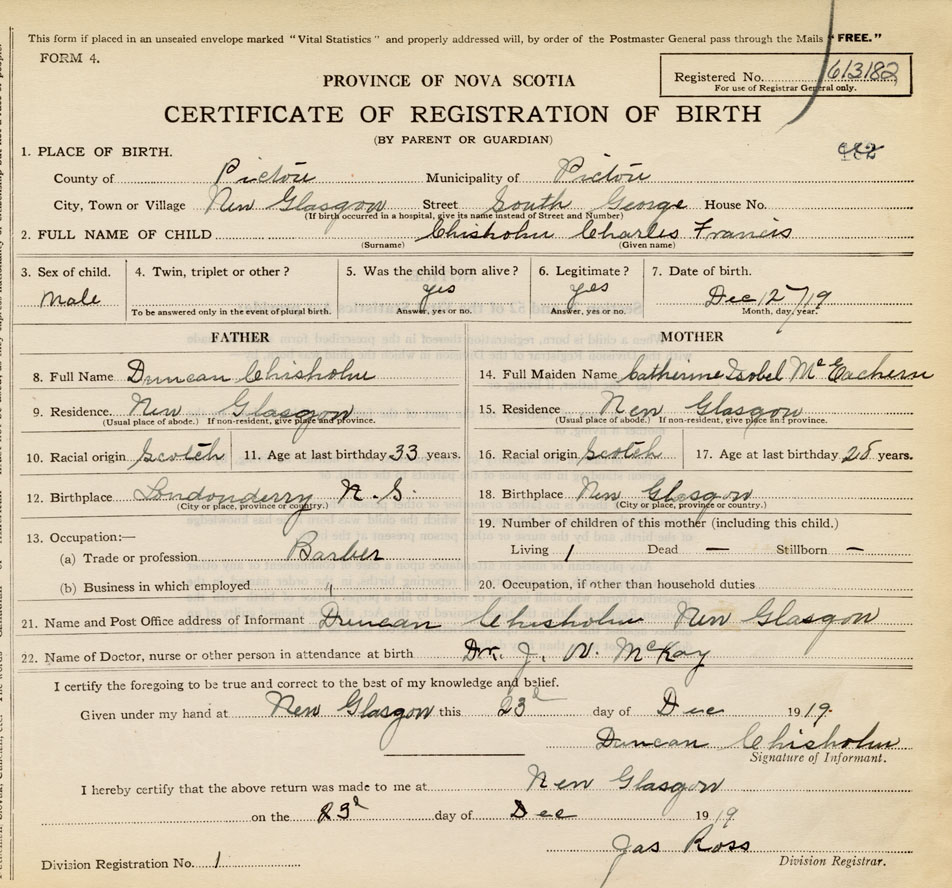 This form if placed in an unsealed envelope marked "Vital Statistics" and properly addressed will, by order of the Postmaster General pass through the Mails "FREE."
FORM 4.
Registered No. 613182
For use of Registrar General only.
PROVINCE OF NOVA SCOTIA
CERTIFICATE OF REGISTRATION OF BIRTH
(BY PARENT OR GUARDIAN)
1. PLACE OF BIRTH.
County of Pictou Municipality of Pictou
City, Town or Village New Glasgow Street South George House No.
(If birth occurred in a hospital, give its name instead of Street and Number)
2. FULL NAME OF CHILD Chisholm Charles Francis
(Surname) (Given name)
3. Sex of child. 4. Twin, triplet or other? 5. Was the child born alive? 6. Legitimate? 7. Date of birth.
Male yes yes Dec 12/19
To be answered only in the event of plural birth. Answer, yes or no. Answer, yes or no. Month, day, year.
FATHER MOTHER
8. Full Name Duncan Chisholm 14. Full Maiden Name Catherine Isobel McEachern
9. Residence. New Glasgow 15. Residence New Glasgow
(Usual place of abode.) If non-resident, give place and province. (Usual place of abode.) If non-resident, give place and province.
10. Racial origin Scotch 11. Age at last birthday 33 years. 16. Racial origin Scotch 17. Age at last birthday years.
12. Birthplace Londonderry N.S. 18. Birthplace New Glasgow
(City or place, province or country.) (City or place, province or country.)
13. Occupation:— 19. Number of children of this mother (including this child.)
(a) Trade or profession Barber Living 1 Dead — Stillborn —
(b) Business in which employed " 20. Occupation, if other than household duties
21. Name and Post Office address of Informant Duncan Chisholm New Glasgow
22. Name of Doctor, nurse or other person in attendance at birth Dr. J. W. McKay
I certify the foregoing to be true and correct to the best of my knowledge and belief.
Given under my hand at New Glasgow this 23d day of Dec 1919.
Duncan Chisholm
Signature of Informant.
I hereby certify that the above return was made to me at New Glasgow
on the 23d day of Dec 1919
Jas Ross
Division Registration No. 1 Division Registrar.